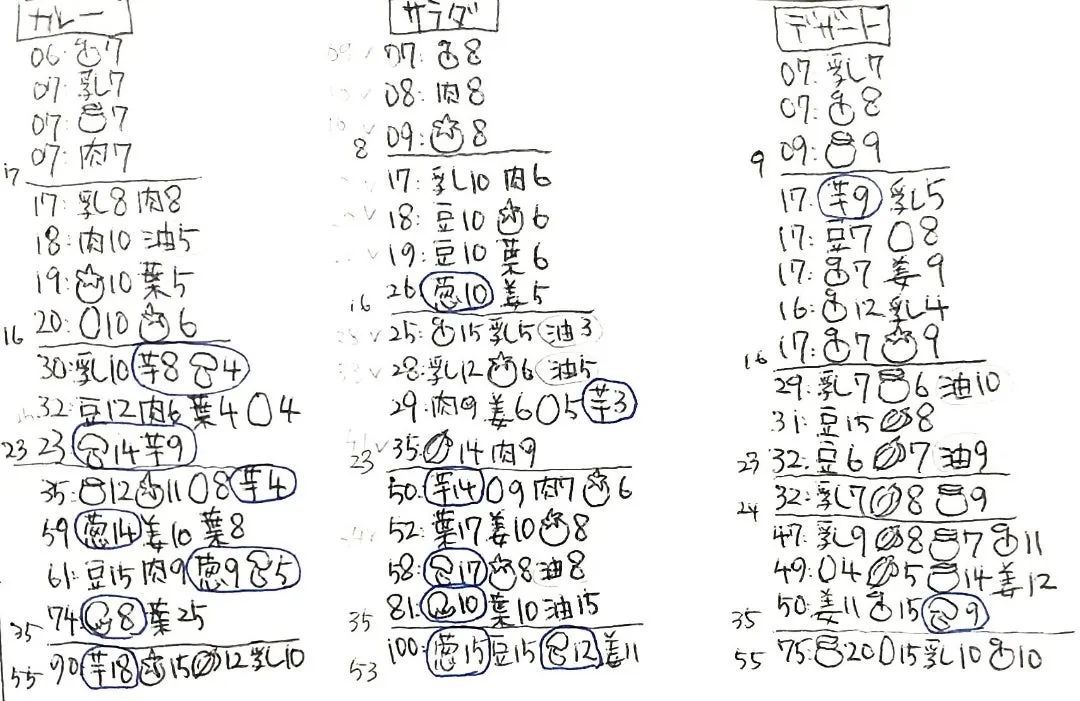 カレー
06: 7
07: 乳7
07: 7
07: 肉7
17
17: 乳8 肉8
18: 肉10 油5
19: 10 葉5
20: 10 6
16
30: 乳10 芋8 4
32: 豆12 肉 葉4 4
23
23 14 芋9
35: 12 11 8 芋4
59 葱14 姜10 葉8
61: 豆15 肉9 葱9 5
74 8 葉25
35
90 芋18 15 12 乳10
55
サラダ
07: 8
08: 肉8
09: 8
8
17: 乳10 肉6
18: 豆10 6
19: 豆10 葉6
26 葱10 姜5
16
25: 15 乳5 油3
28: 乳12 6 油5
29: 肉9 姜6 5 芋3
35: 14 肉9
23
50: 芋14 9 肉7 6
52: 葉17 姜10 8
58: 17 8 油8
81: 10 葉10 油15
35
100: 葱15 豆15 12 姜11
53
デザート
07: 乳7
07: 8
09: 9
9
17: 芋9 乳5
17: 豆7 8
17: 7 姜9
16: 12 乳4
17: 7 9
16
29: 乳7 6 油10
31: 豆15 8
32: 豆6 7 油9
23
32: 乳7 8 9
24
47: 乳9 8 7 11
49: 4 5 14 姜12
50: 姜11 15 9
35
75: 20 15 乳10 10
55